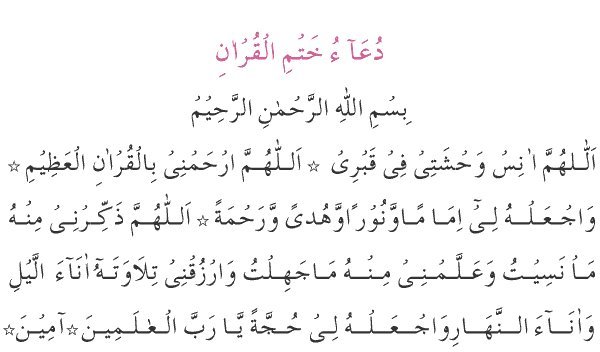 دُعَآءُ خَتْمِ الْقُرْاٰنِ
بِسْمِ اللّٰهِ الرَّحْمٰنِ الرَّحِيْمْ
اَللّٰهُمَّ اٰنِسْ وَحْشَتِىْ فِىْ قَبْرِىْ ☆ اَللّٰهُمَّ ارْحَمْنِىْ بِالْقُرْاٰنِ الْعَظِيْمِ ☆
وَاجْعَلْهُ لِىْٓ اِمَامًا وَّنُوْرًا وَّهُدىً وَّرَحْمَةً ☆ اَللّٰهُمَّ ذَكِّرْنِىْ مِنْهُ
مَاْ نَسِيْتُ وَعَلَّمْنِىْ مِنْهُ مَاجَهِلْتُ وَارْزُقْنِىْ تِلَاوَتَهٗٓ اٰنَآءَ الَّيْلِ
وَاٰنَآءَ النَّهَارِ وَاجْعَلْهُ لِىْ حُجَّةً يَّا رَبَّ الْعٰلَمِيْنَ ☆ اٰمِيْنَ ☆